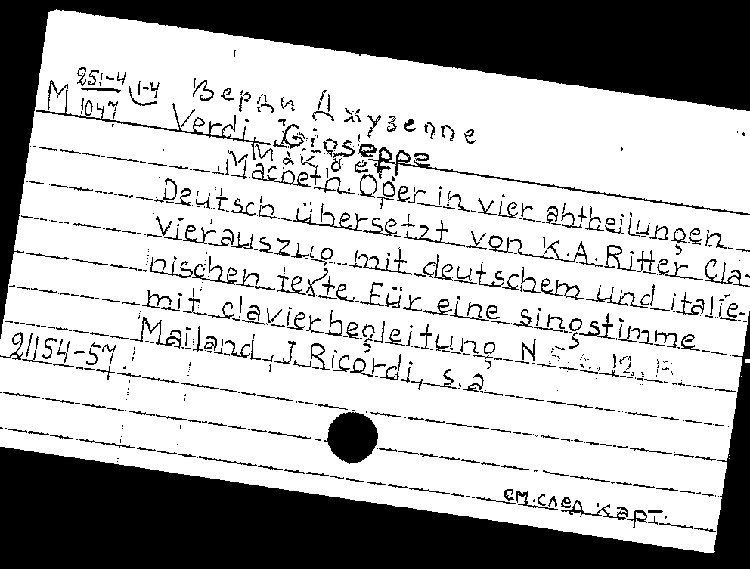 M 251-4/1047 1-4 Верди Джузеппе
Verdi, Gioseppe
Макбет
Macbeth. Oper in vier abtheilungen
Deutsch übersetzt von K.A. Ritter Cla-
vierauszug mit deutschem und italie-
nischen texte. Für eine singstimme
mit clavierbegleitung N 5, 6, 12, 13.
21154-57. Mailand, J. Ricordi, s.a
см. след карт.